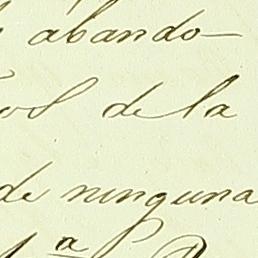 abando-
de la
de ninguna